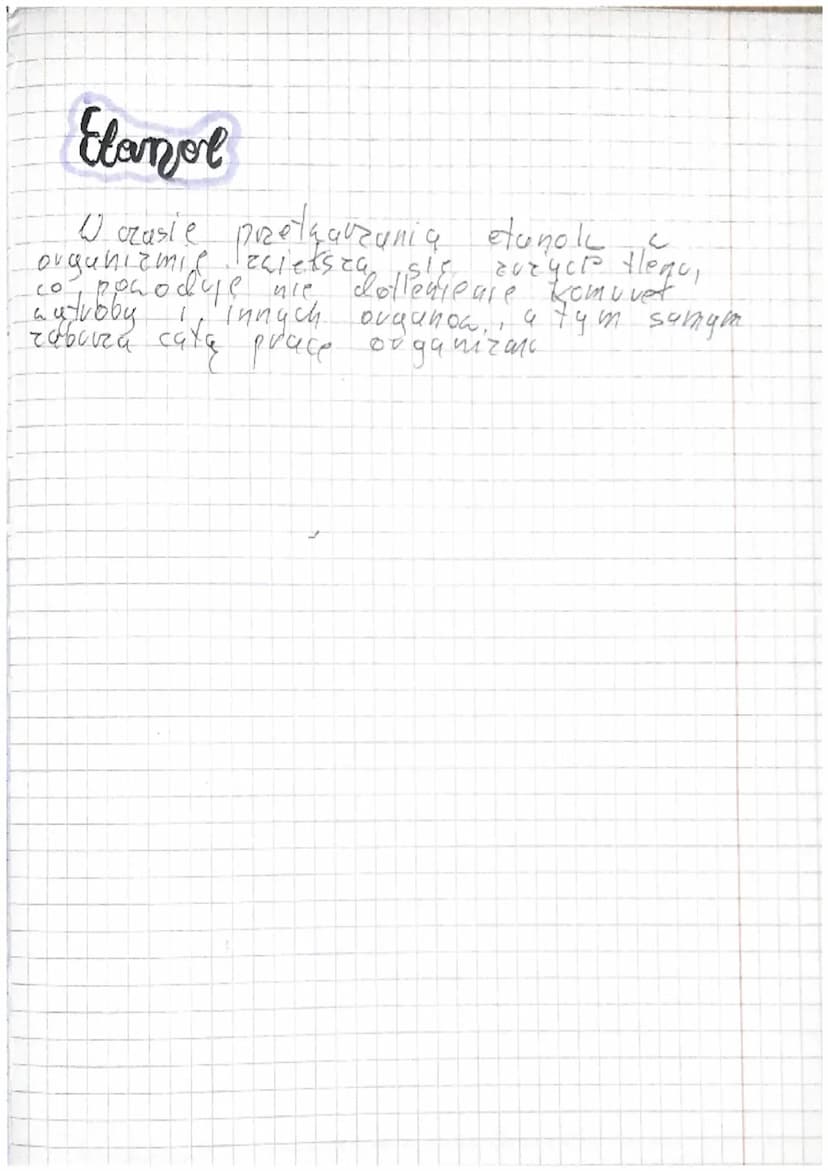 Etanol
W czasie przetwarzania etanolu w
organizmie zwiększa się zużycie tlenu,
co powoduje nie dotlenienie komórek
wątroby i innych organów, a tym samym
zaburza całą pracę organizmu